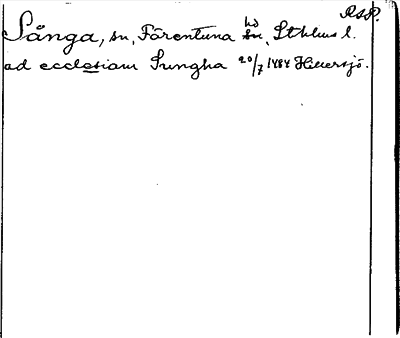 RAP.
Sånga, sn, Färentuna hd, Sthlms l.
ad ecclesiam Sungha 20/7 1484 Hillersjö.